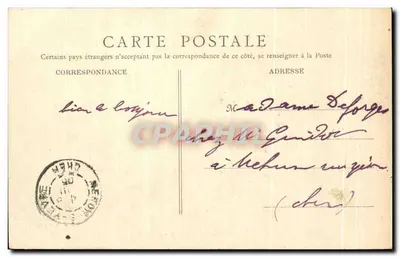 CARTE POSTALE
Certains pays étrangers n'acceptant pas la correspondance de ce côté, se renseigner à la Poste
CORRESPONDANCE
ADRESSE
bien le bonjour
Madame Deforges
chez Mr
à Mehun sur yèvre
(cher)
CHER